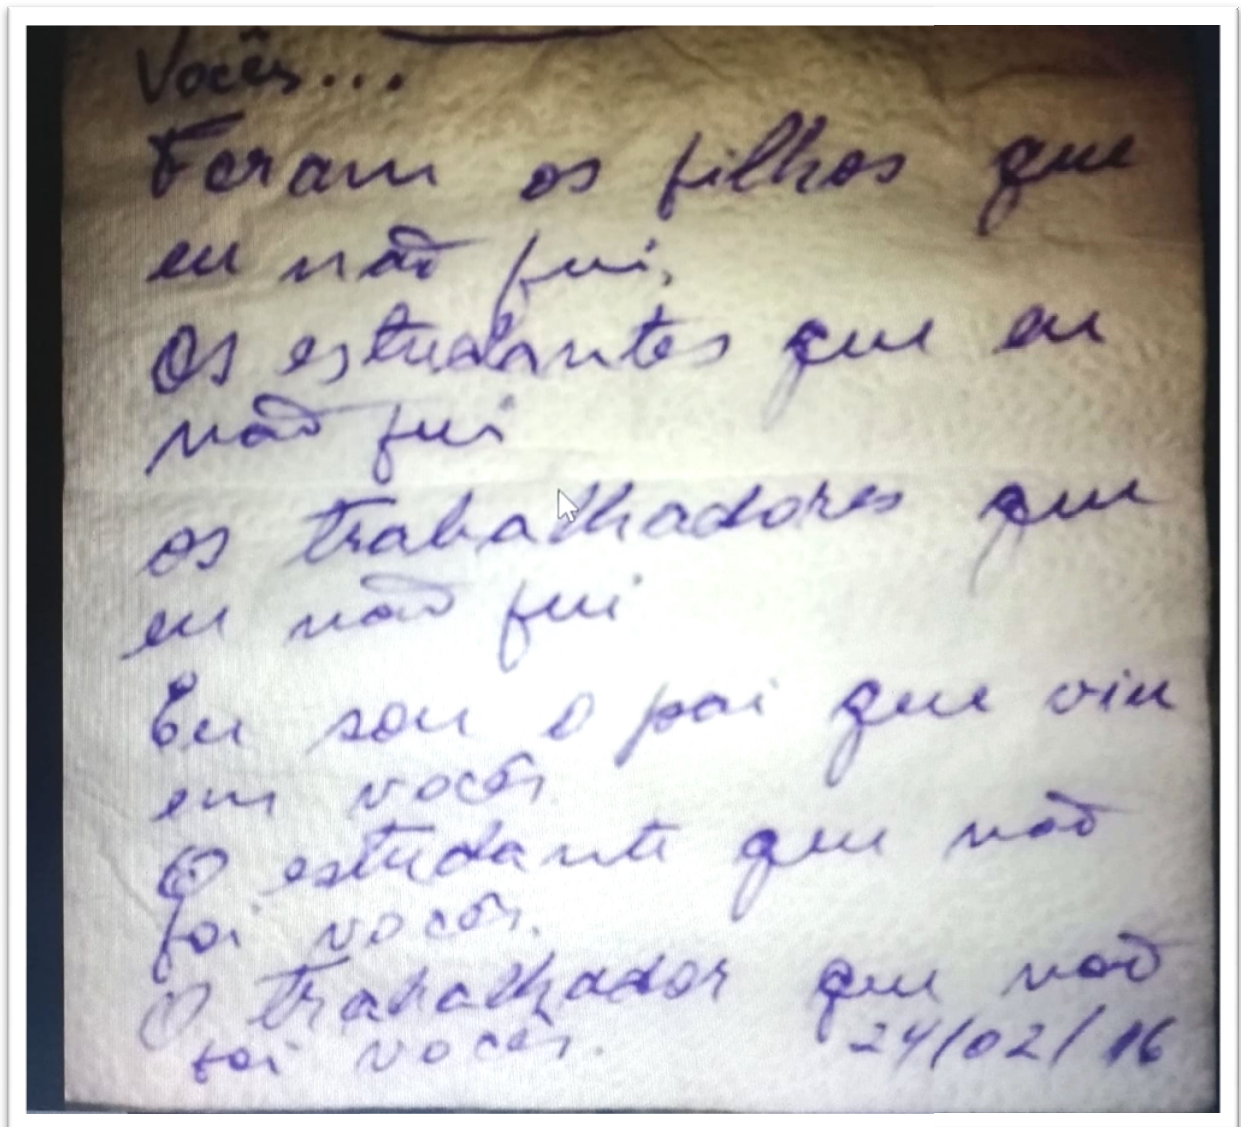 Vocês...
Foram os filhos que
eu não fui,
Os estudantes que eu
não fui
os trabalhadores que
eu não fui
Eu sou o pai que viu
em vocês
O estudante que não
foi vocês.
O trabalhador que não
foi vocês.
24/02/16